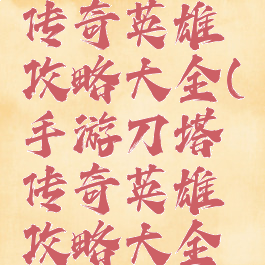 传奇英雄
攻略大全(
手游刀塔
传奇英雄
攻略大全